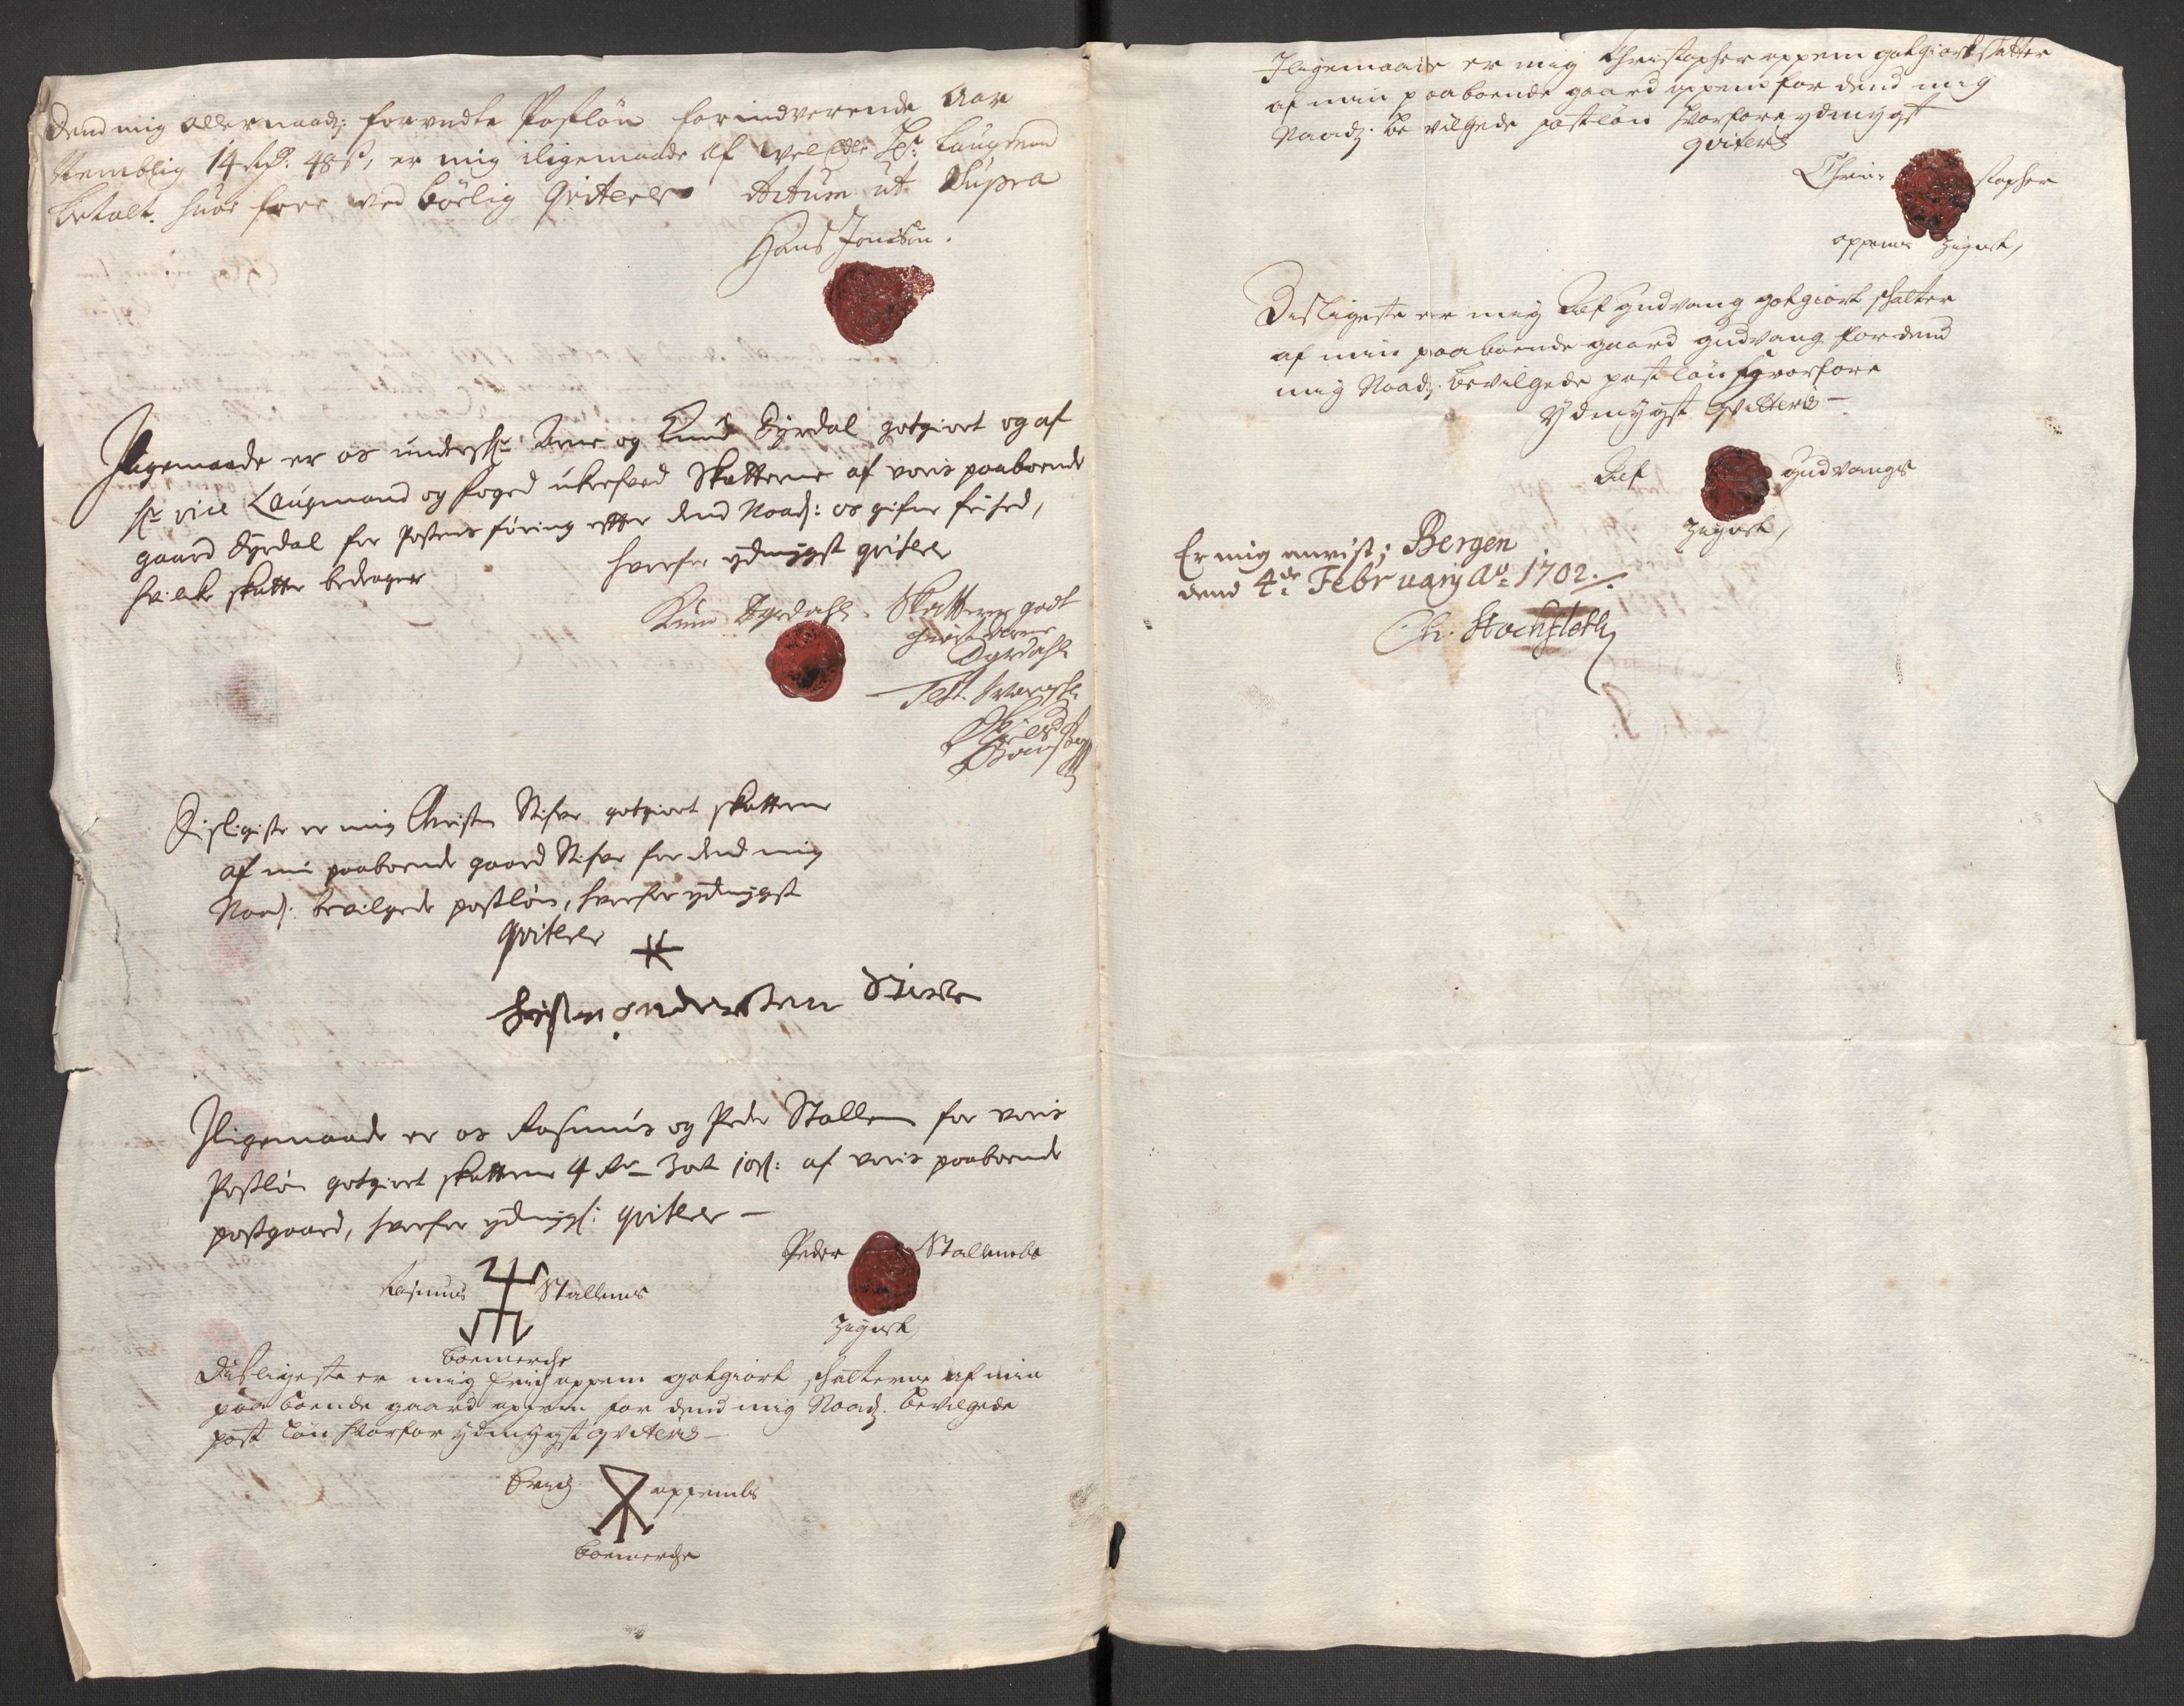 Dend mig allernaad: forundte Postlön for indverende Aar
Nemblig 14 Rd: 48 s, er mig iligemaade af Vel Edle Hr: Laugmand
betalt. huor fore ved börlig Qviterer Actum ut Supra
Hans Jonsön.
Iligemaade er os undersk: Arne og Knud Dyrdal gotgiort og af
Hr vice Laugmand og foged Skatterne af voris paaboende
gaard Dyrdal for Postens föring efter dend Naad: os gifne frihed,
hvilke skatter bedrager hvorfor ydmygst qviterer
Knud Dyrdahl. Skatterne godt
giort Arne
Dyrdahl
Test.
Disligiste er mig Christen Stifve gotgiort skatterne
af min paaboende gaard Stifve for dend mig
Naad: bevilgede postlön, hvorfor ydmygst
qviterer
Christen Andersen Stifve
Iligemaade er os Rasmus og Peder Stallem for voris
Postlön gotgiort skatterne 4 Rd 3 ort 10 s: af voris paaboende
postgaard, hvorfor ydmygs: qviterer
Peder Stallembs
Zignet,
Rasmus Stallems
boemerche
Disligeste er mig Erich oppem gotgiort schatterne af min
paaboende gaard oppem for dend mig Naad: bevilgede
post lön hvorfor ydmygst qviteris
Erich oppembs
boemerche
Iligemaade er mig Christopher oppem gotgiort Skatter
af min paaboende gaard oppem for dend mig
Naad: bevilgede postlön hvorfore ydmygst
qviteris
Chri- stopher
oppems Zignet,
Disligeste er mig Gudvang gotgiort schatter
af min paaboende gaard gudvang for dend
mig Naad: bevilgede post lön hvorfore
ydmygst qvitteris
Gudvangs
Zignet,
Er mig anvist; Bergen
dend 4de February Ao: 1702.
Ch. Stockfleth